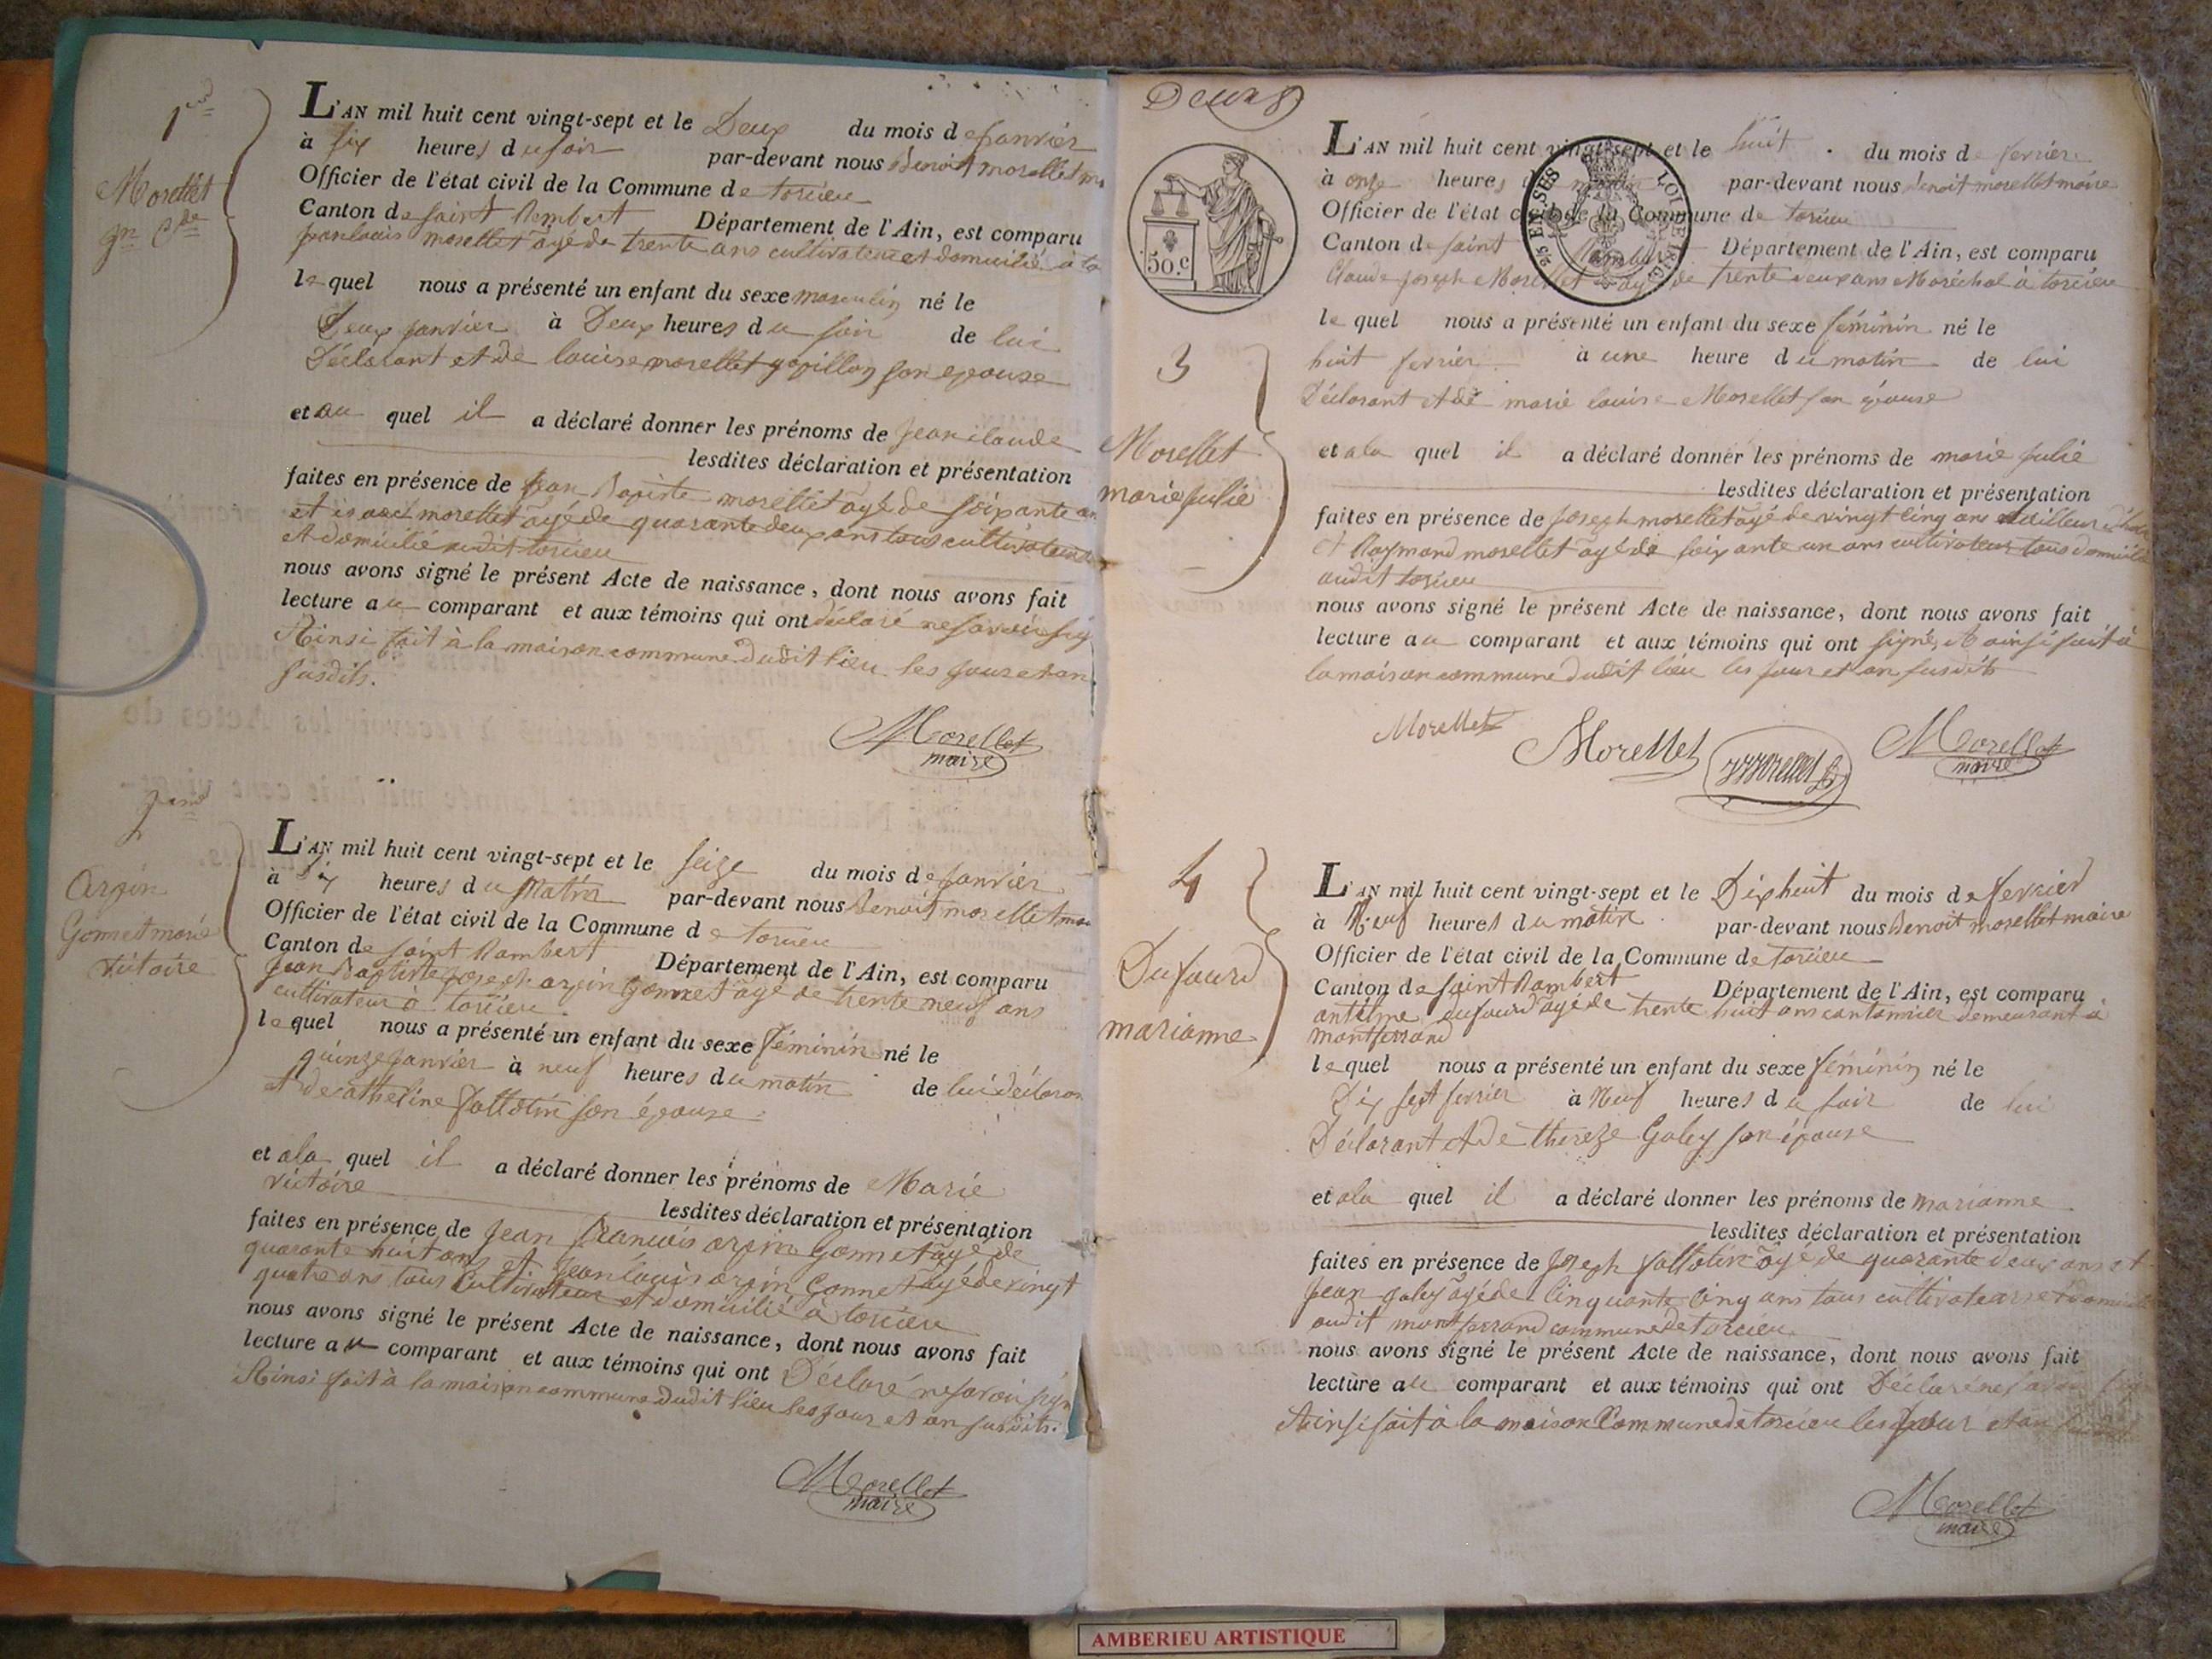 1er
Morellet
jn Cde
L'AN mil huit cent vingt-sept et le Deux du mois de janvier
à six heures du soir par-devant nous Benoit morellet
Officier de l'état civil de la Commune de torcieu
Canton de saint Rambert Département de l'Ain, est comparu
jean louis morellet âgé de trente ans cultivateur et domicilié à
le quel nous a présenté un enfant du sexe masculin né le
Deux janvier à Deux heures du soir de lui
Déclarant et de louise morellet papillon son epouse
et au quel il a déclaré donner les prénoms de jean claude
lesdites déclaration et présentation
faites en présence de jean Baptiste morellet âgé de soixante an
et morellet âgé de quarante deux ans tous cultivateurs
et domicilié audit torcieu
nous avons signé le présent Acte de naissance, dont nous avons fait
lecture au comparant et aux témoins qui ont déclaré ne savoir sig
Ainsi fait à la maison commune dudit lieu les jour et an
susdits.
Morellet
maire
2me
arpin
Gonnet marie
victoire
L'AN mil huit cent vingt-sept et le seize du mois de janvier
à six heures du Matin par-devant nous Benoit morellet mai
Officier de l'état civil de la Commune de torcieu
Canton de saint Rambert Département de l'Ain, est comparu
Jean Baptiste joseph arpin Gonnet âgé de trente neuf ans
cultivateur à torcieu
le quel nous a présenté un enfant du sexe féminin né le
quinze janvier à neuf heures du matin de lui déclaran
et de catherine fallotin son épouse
et a la quel il a déclaré donner les prénoms de Marie
victoire
lesdites déclaration et présentation
faites en présence de jean francois arpin Gonnet âgé de
quarante huit ans et jean louis arpin Gonnet âgé de vingt
quatre ans tous Cultivateur et domicilié à torcieu
nous avons signé le présent Acte de naissance, dont nous avons fait
lecture au comparant et aux témoins qui ont Déclaré ne savoir sign
Ainsi fait à la maison commune dudit lieu les jour et an susdits.
Morellet
maire
Deux
50.c
25 EN SES
LOI DE 1816
L'AN mil huit cent vingt-sept et le huit du mois de fevrier
à onze heures du matin par-devant nous benoit morellet maire
Officier de l'état civil de la Commune de torcieu
Canton de saint Rambert Département de l'Ain, est comparu
Claude joseph Morellet âgé de trente deux ans Maréchal à torcieu
le quel nous a présenté un enfant du sexe féminin né le
huit fevrier à une heure du matin de lui
Déclarant et de marie louise Morellet son épouse
3
Morellet
marie julie
et a la quel il a déclaré donner les prénoms de marie julie
lesdites déclaration et présentation
faites en présence de joseph morellet âgé de vingt cinq ans tailleur
et Raymond morellet âgé de soixante un ans cultivateur tous domicilié
audit torcieu
nous avons signé le présent Acte de naissance, dont nous avons fait
lecture au comparant et aux témoins qui ont signé, et ainsi fait à
la maison commune dudit lieu les jour et an susdits
Morellet Morellet Morellet Morellet
maire
4
Dufourd
marianne
L'AN mil huit cent vingt-sept et le Dix huit du mois de fevrier
à Neuf heures du matin par-devant nous Benoit morellet maire
Officier de l'état civil de la Commune de torcieu
Canton de saint Rambert Département de l'Ain, est comparu
antelme dufourd âgé de trente huit ans cantonnier demeurant à
montferrand
le quel nous a présenté un enfant du sexe féminin né le
Dix sept fevrier à Neuf heures du soir de lui
Déclarant et de thereze Galey son épouse
et a la quel il a déclaré donner les prénoms de marianne
lesdites déclaration et présentation
faites en présence de joseph fallotin âgé de quarante deux ans et
jean galey âgé de Cinquante Cinq ans tous cultivateurs et domicilié
audit montferrand commune de torcieu
nous avons signé le présent Acte de naissance, dont nous avons fait
lecture au comparant et aux témoins qui ont Déclaré ne savoir
Ainsi fait à la maison Commune de torcieu les jour et an
Morellet
maire
AMBERIEU ARTISTIQUE